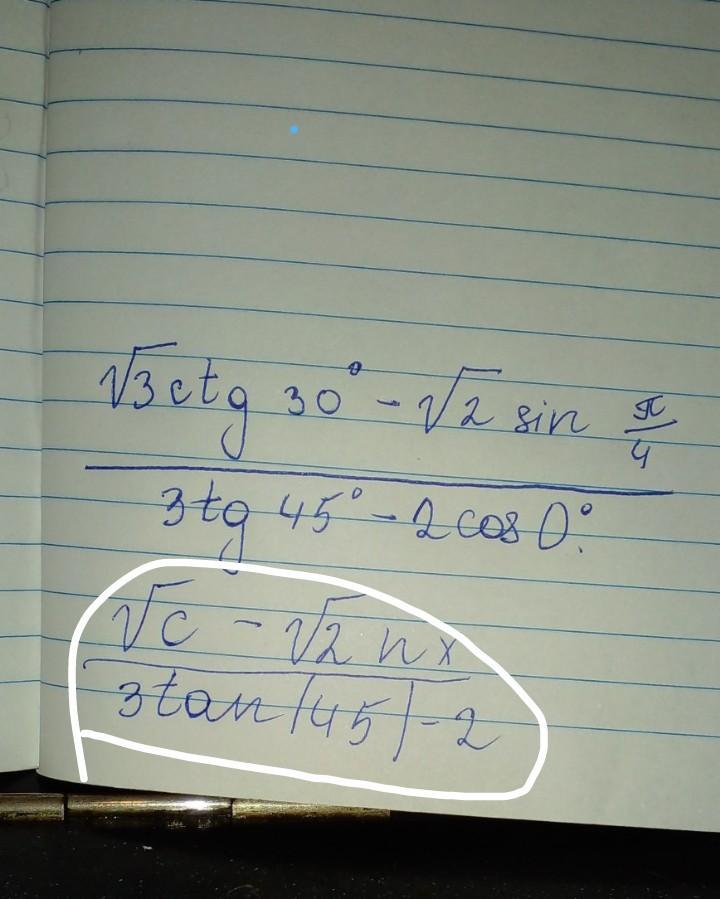 √3 ctg 30° - √2 sin π/4
3 tg 45° - 2 cos 0°.
√c - √2 n x
3 tan |45| - 2